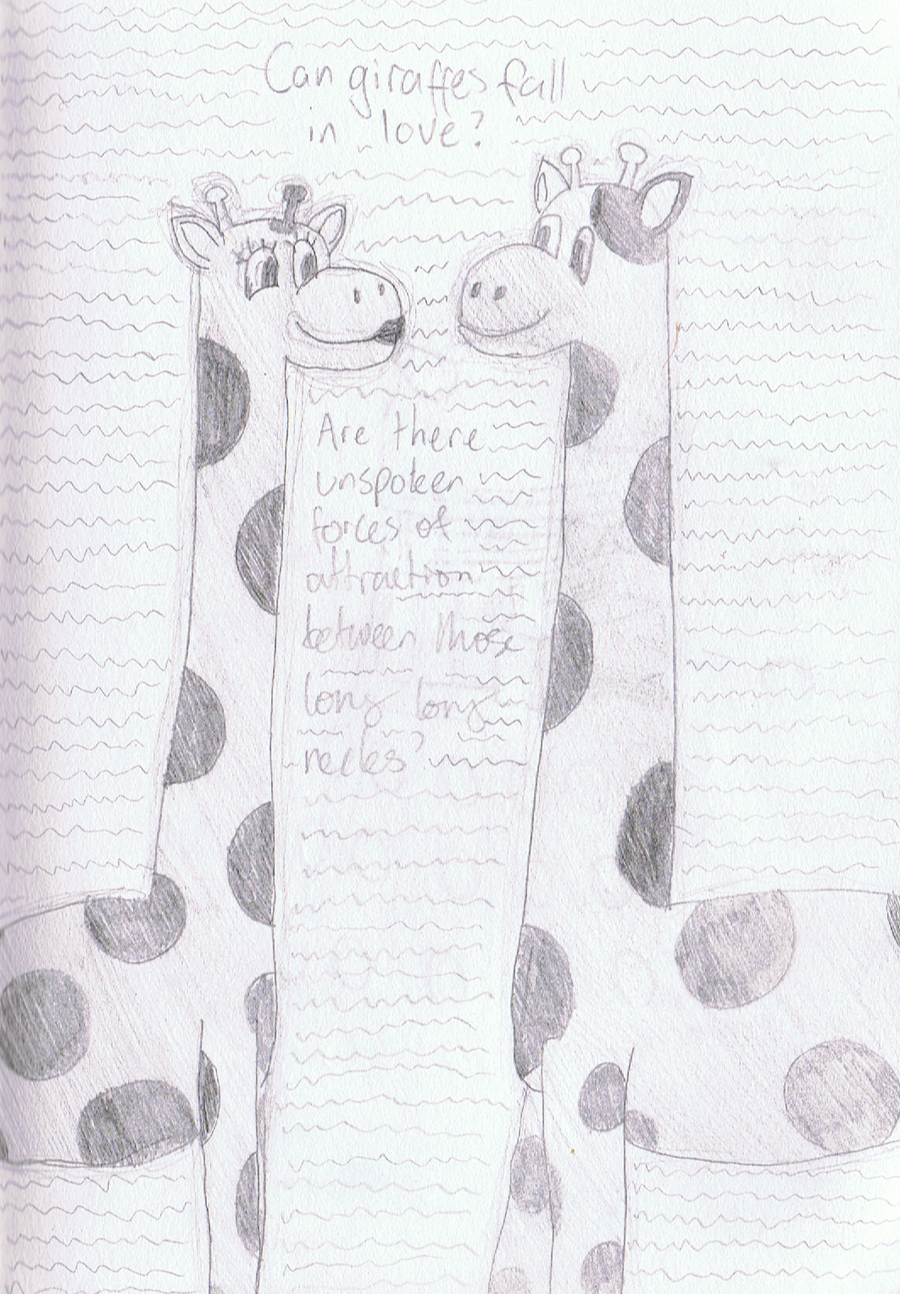 Can giraffes fall
in love?
Are there
unspoken
forces of
attraction
between those
long long
necks?